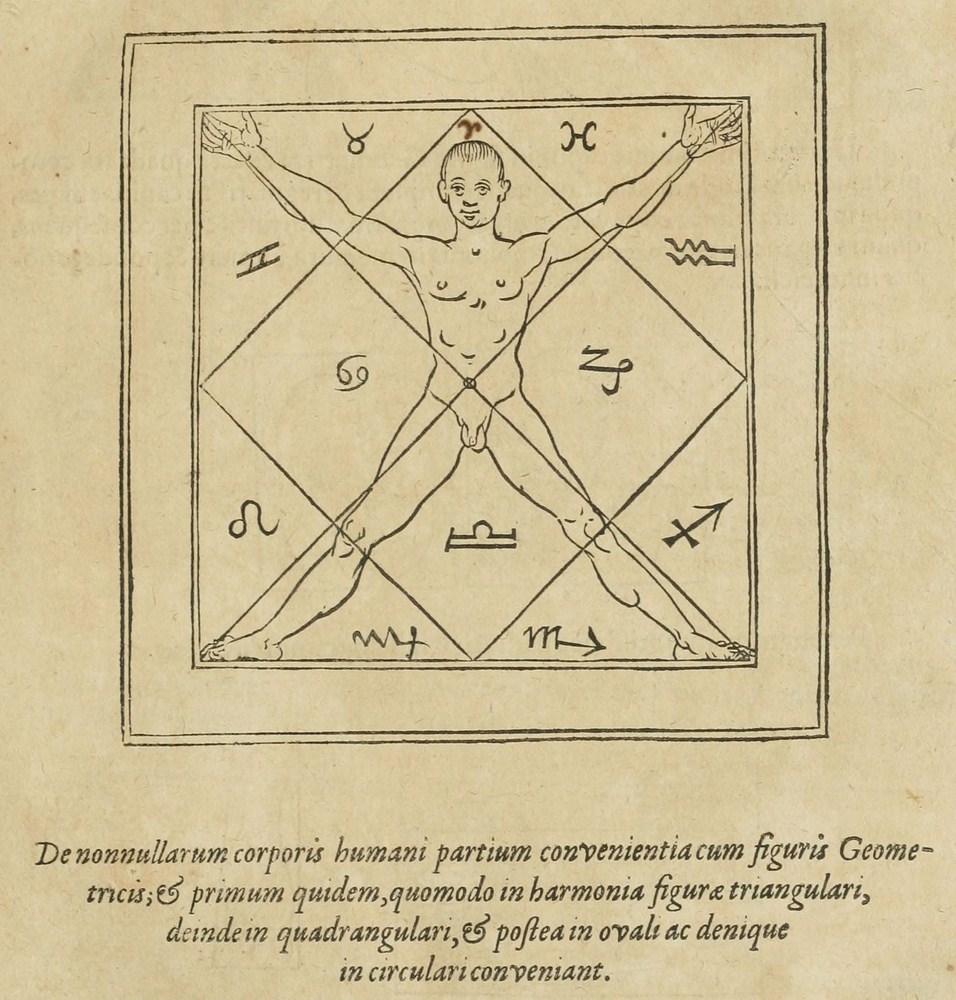 ♈
♉ ♓
♊ ♒
♋ ♑
♌ ♎ ♐
♍ ♏
De nonnullarum corporis humani partium convenientia cum figuris Geome-
tricis; & primum quidem, quomodo in harmonia figuræ triangulari,
deinde in quadrangulari, & postea in ovali ac denique
in circulari conveniant.